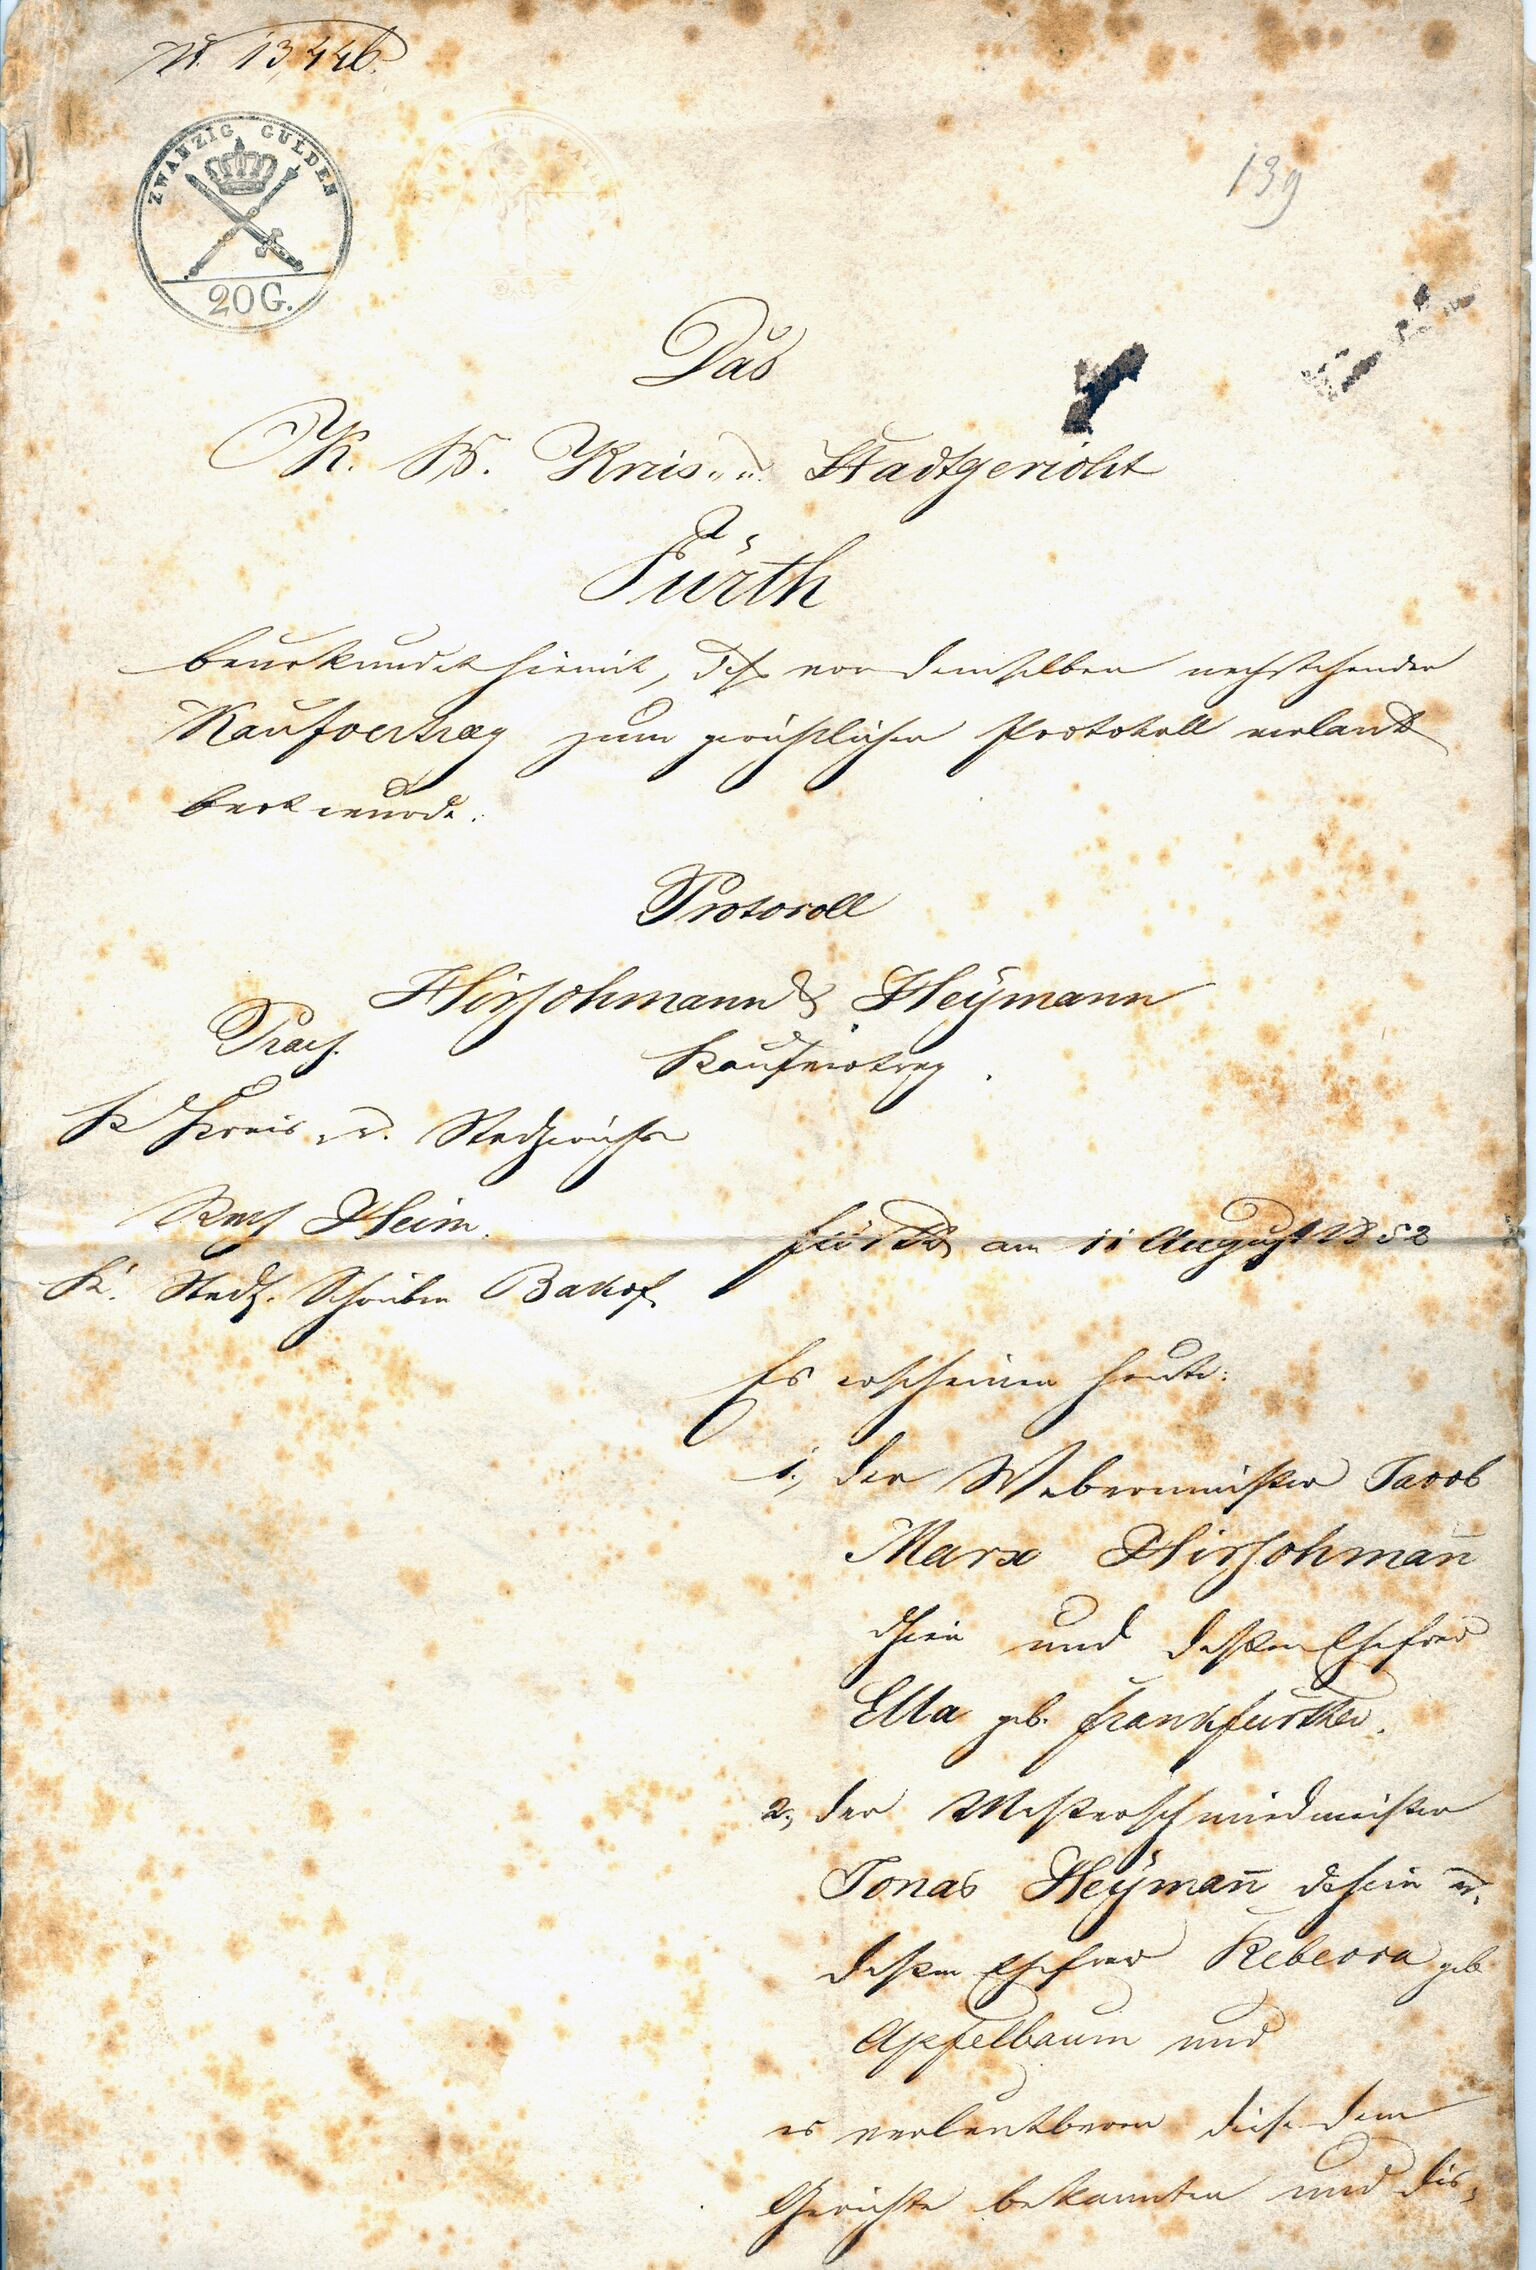 N. 13,446.
ZWANZIG GULDEN
20 G.
139
Das
K. B. Kreis- u. Stadtgericht
Fürth
beurkundet hiemit, daß vor demselben nachstehender
Kaufvertrag zum gerichtlichen Protokoll verlaut
bart wurde.
Protocoll
Hirschmann & Heÿmann
Praes.
Kaufvertrag.
K Kreis u. Stadtgerichts
Heim.
K. Stadtg. Schreiber Backof
Fürth am 11 August 1852
Es erscheinen heute:
1., der Webermeister Jacob
Marx Hirschmañ
dahier und dessen Ehefrau
Ella geb. Frankfurther.
2., der Messerschmiedmeister
Jonas Heÿmañ dahier u.
dessen Ehefrau Rebecca geb
Apfelbaum und
es verlautbaren diese dem
Gerichte bekannten und dis-